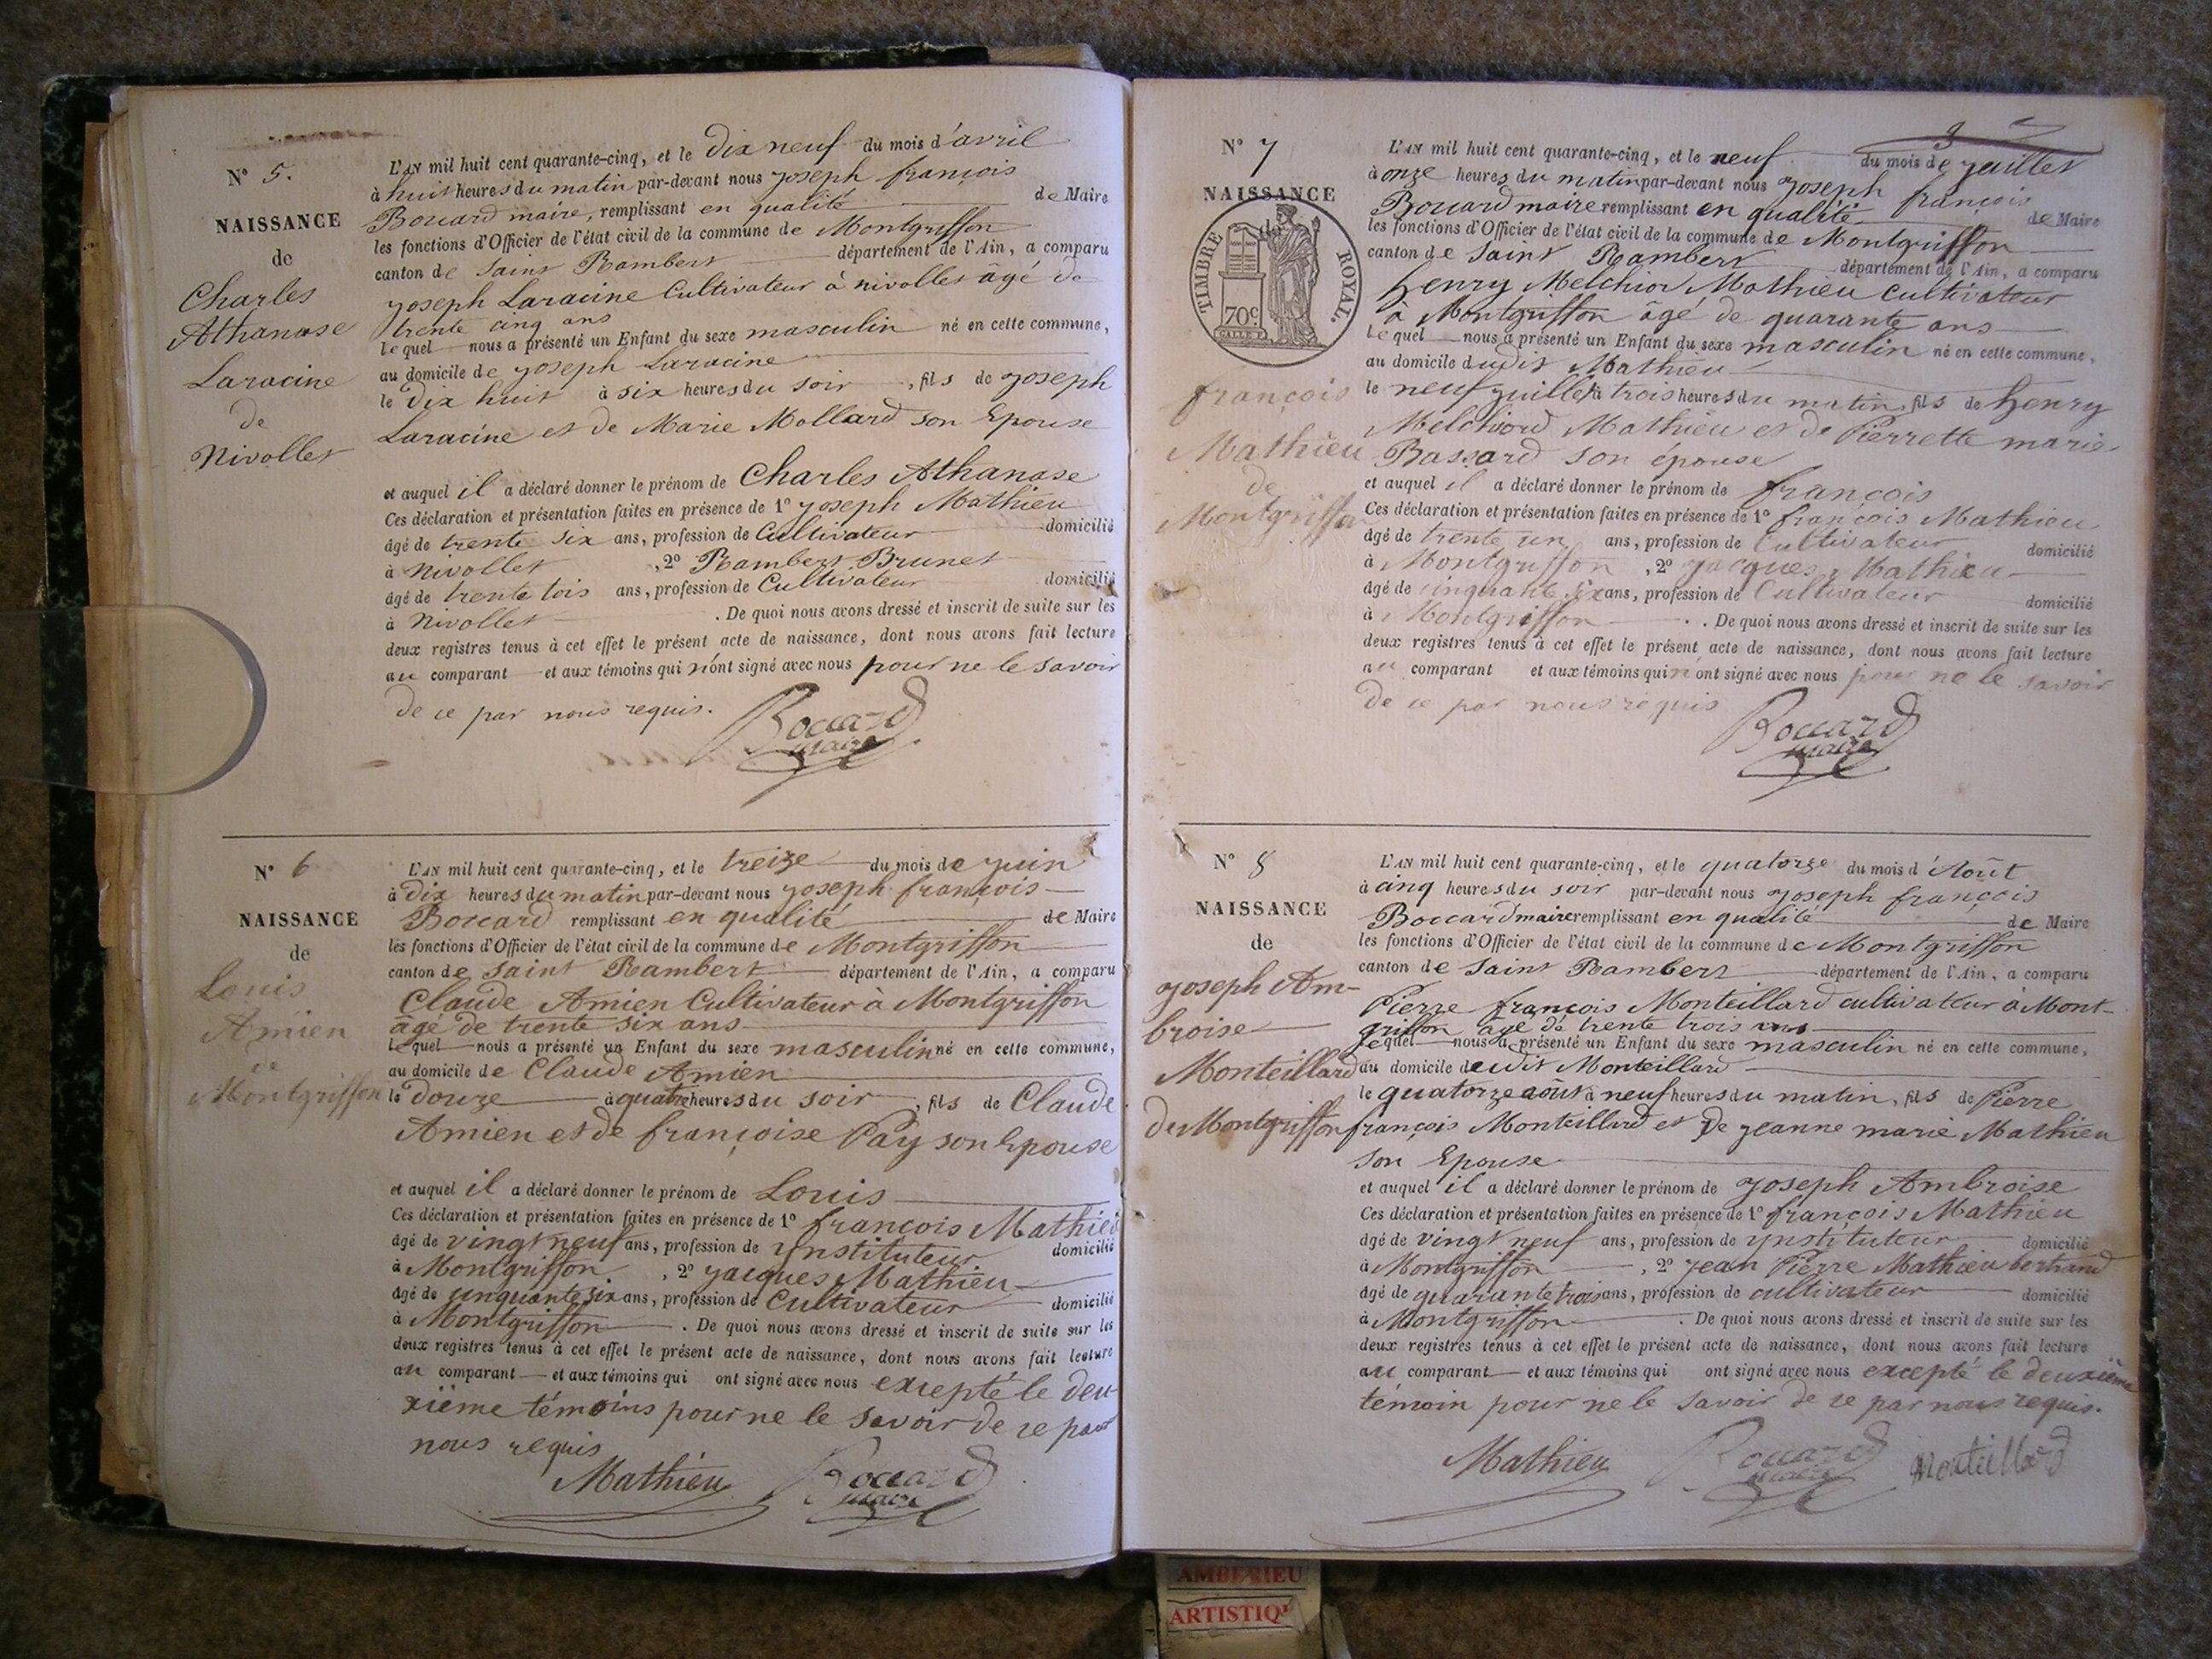 N° 5.
NAISSANCE
de
Charles
Athanase
Laracine
de
Nivollet
L'AN mil huit cent quarante-cinq, et le dix neuf du mois d'avril
à huit heures du matin par-devant nous Joseph françois
Bouard maire, remplissant en qualité de Maire
les fonctions d'Officier de l'état civil de la commune de Montgriffon
canton de Saint Rambert département de l'Ain, a comparu
Joseph Laracine Cultivateur à nivollet âgé de
trente cinq ans
lequel nous a présenté un Enfant du sexe masculin né en cette commune,
au domicile de Joseph Laracine
le dix huit à six heures du soir, fils de Joseph
Laracine et de Marie Mollard son Epouse
et auquel il a déclaré donner le prénom de Charles Athanase
Ces déclaration et présentation faites en présence de 1° Joseph Mathieu
âgé de trente six ans, profession de Cultivateur domicilié
à Nivollet, 2° Rambert Brunet
âgé de trente tois ans, profession de Cultivateur domicilié
à Nivollet. De quoi nous avons dressé et inscrit de suite sur les
deux registres tenus à cet effet le présent acte de naissance, dont nous avons fait lecture
au comparant et aux témoins qui n'ont signé avec nous pour ne le savoir
de ce par nous requis.
Boccard
maire
N° 6
NAISSANCE
de
Louis
Amien
de
Montgriffon
L'AN mil huit cent quarante-cinq, et le treize du mois de juin
à dix heures du matin par-devant nous Joseph françois
Boccard remplissant en qualité de Maire
les fonctions d'Officier de l'état civil de la commune de Montgriffon
canton de Saint Rambert département de l'Ain, a comparu
Claude Amien Cultivateur à Montgriffon
âgé de trente six ans
lequel nous a présenté un Enfant du sexe masculin né en cette commune,
au domicile de Claude Amien
le douze à quatre heures du soir, fils de Claude
Amien et de françoise Pay son Epouse
et auquel il a déclaré donner le prénom de Louis
Ces déclaration et présentation faites en présence de 1° francois Mathieu
âgé de vingt neuf ans, profession de ynstituteur domicilié
à Montgriffon, 2° Jacques Mathieu
âgé de cinquante six ans, profession de Cultivateur domicilié
à Montgriffon. De quoi nous avons dressé et inscrit de suite sur les
deux registres tenus à cet effet le présent acte de naissance, dont nous avons fait lecture
au comparant et aux témoins qui ont signé avec nous excepté le deu
xième témoins pour ne le savoir de ce par
nous requis
Mathieu Boccard
maire
N° 7
NAISSANCE
TIMBRE ROYAL.
70c.
françois
Mathieu
de
Montgriffon
L'AN mil huit cent quarante-cinq, et le neuf du mois de juillet
à onze heures du matin par-devant nous Joseph françois
Bouard maire remplissant en qualité de Maire
les fonctions d'Officier de l'état civil de la commune de Montgriffon
canton de Saint Rambert département de l'Ain, a comparu
henry Melchior Mathieu Cultivateur
à Montgriffon âgé de quarante ans
lequel nous a présenté un Enfant du sexe masculin né en cette commune,
au domicile dudit Mathieu
le neuf juillet à trois heures du matin, fils de henry
Melchiord Mathieu et de Pierrette marie
Bassard son epouse
et auquel il a déclaré donner le prénom de françois
Ces déclaration et présentation faites en présence de 1° françois Mathieu
âgé de trente un ans, profession de Cultivateur domicilié
à Montgriffon, 2° Jacques Mathieu
âgé de cinquante six ans, profession de Cultivateur domicilié
à Montgriffon. De quoi nous avons dressé et inscrit de suite sur les
deux registres tenus à cet effet le présent acte de naissance, dont nous avons fait lecture
au comparant et aux témoins qui n'ont signé avec nous pour ne le savoir
de ce par nous requis
Boccard
maire
N° 8
NAISSANCE
de
Joseph Am-
broise
Monteillard
de Montgriffon
L'AN mil huit cent quarante-cinq, et le quatorze du mois d'Août
à cinq heures du soir par-devant nous Joseph françois
Boccard maire remplissant en qualité de Maire
les fonctions d'Officier de l'état civil de la commune de Montgriffon
canton de Saint Rambert département de l'Ain, a comparu
Pierre françois Monteillard cultivateur à Mont-
griffon âgé de trente trois ans
lequel nous a présenté un Enfant du sexe masculin né en cette commune,
au domicile dudit Monteillard
le quatorze août à neuf heures du matin, fils de Pierre
françois Monteillard et de Jeanne marie Mathieu
son Epouse
et auquel il a déclaré donner le prénom de Joseph Ambroise
Ces déclaration et présentation faites en présence de 1° françois Mathieu
âgé de vingt neuf ans, profession de ynstituteur domicilié
à Montgriffon, 2° Jean Pierre Mathieu bertrand
âgé de quarante trois ans, profession de cultivateur domicilié
à Montgriffon. De quoi nous avons dressé et inscrit de suite sur les
deux registres tenus à cet effet le présent acte de naissance, dont nous avons fait lecture
au comparant et aux témoins qui ont signé avec nous excepté le deuxième
témoin pour ne le savoir de ce par nous requis.
Mathieu Boccard Monteillard
maire
AMBERIEU
ARTISTIQ